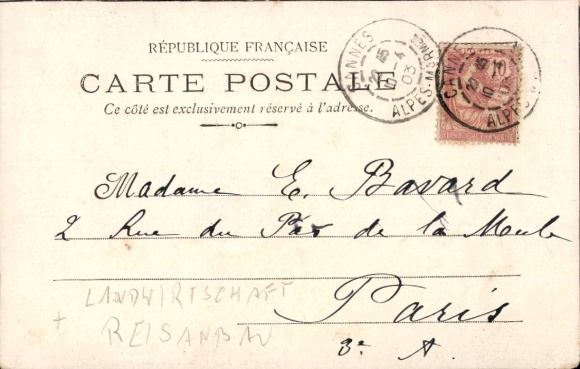 RÉPUBLIQUE FRANÇAISE
CARTE POSTALE
Ce côté est exclusivement réservé à l'adresse.
CANNES
10
03
ALPES-MARmes
CANNES
10
03
ALPES
Madame E. Bavard
2 Rue du Pas de la Mule
Paris
3e A.
LANDWIRTSCHAFT
+ REISANBAU